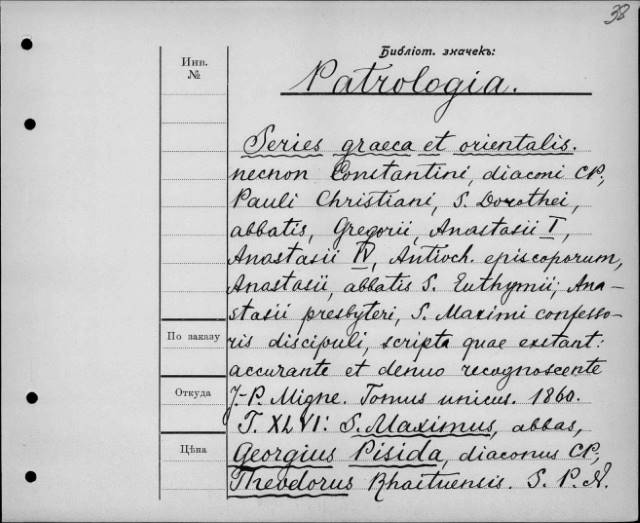 38
Библіот. значекъ:
Инв.
№
Patrologia.
Series graeca et orientalis.
necnon Constantini, diaconi CP,
Pauli Christiani, S. Dorothei,
abbatis, Gregorii, Anastasii I,
Anastasii IV, Antioch. episcoporum,
Anastasii, abbatis S. Euthymii; Ana-
stasii presbyteri, S. Maximi confesso-
По заказу
ris discipuli, scripta quae exstant:
accurante et denuo recognoscente
Откуда
J.-P. Migne. Tomus unicus. 1860.
T. XLVI: S. Maximus, abbas,
Цѣна
Georgius Pisida, diaconus CP,
Theodorus Rhaituensis. S. P. N.